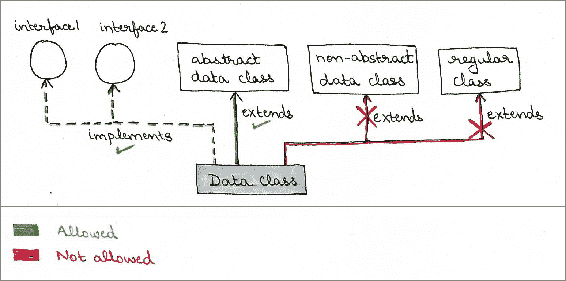 interface1 interface 2
abstract
data class
non-abstract
data class
regular
class
implements
extends
extends
extends
Data Class
Allowed
Not allowed